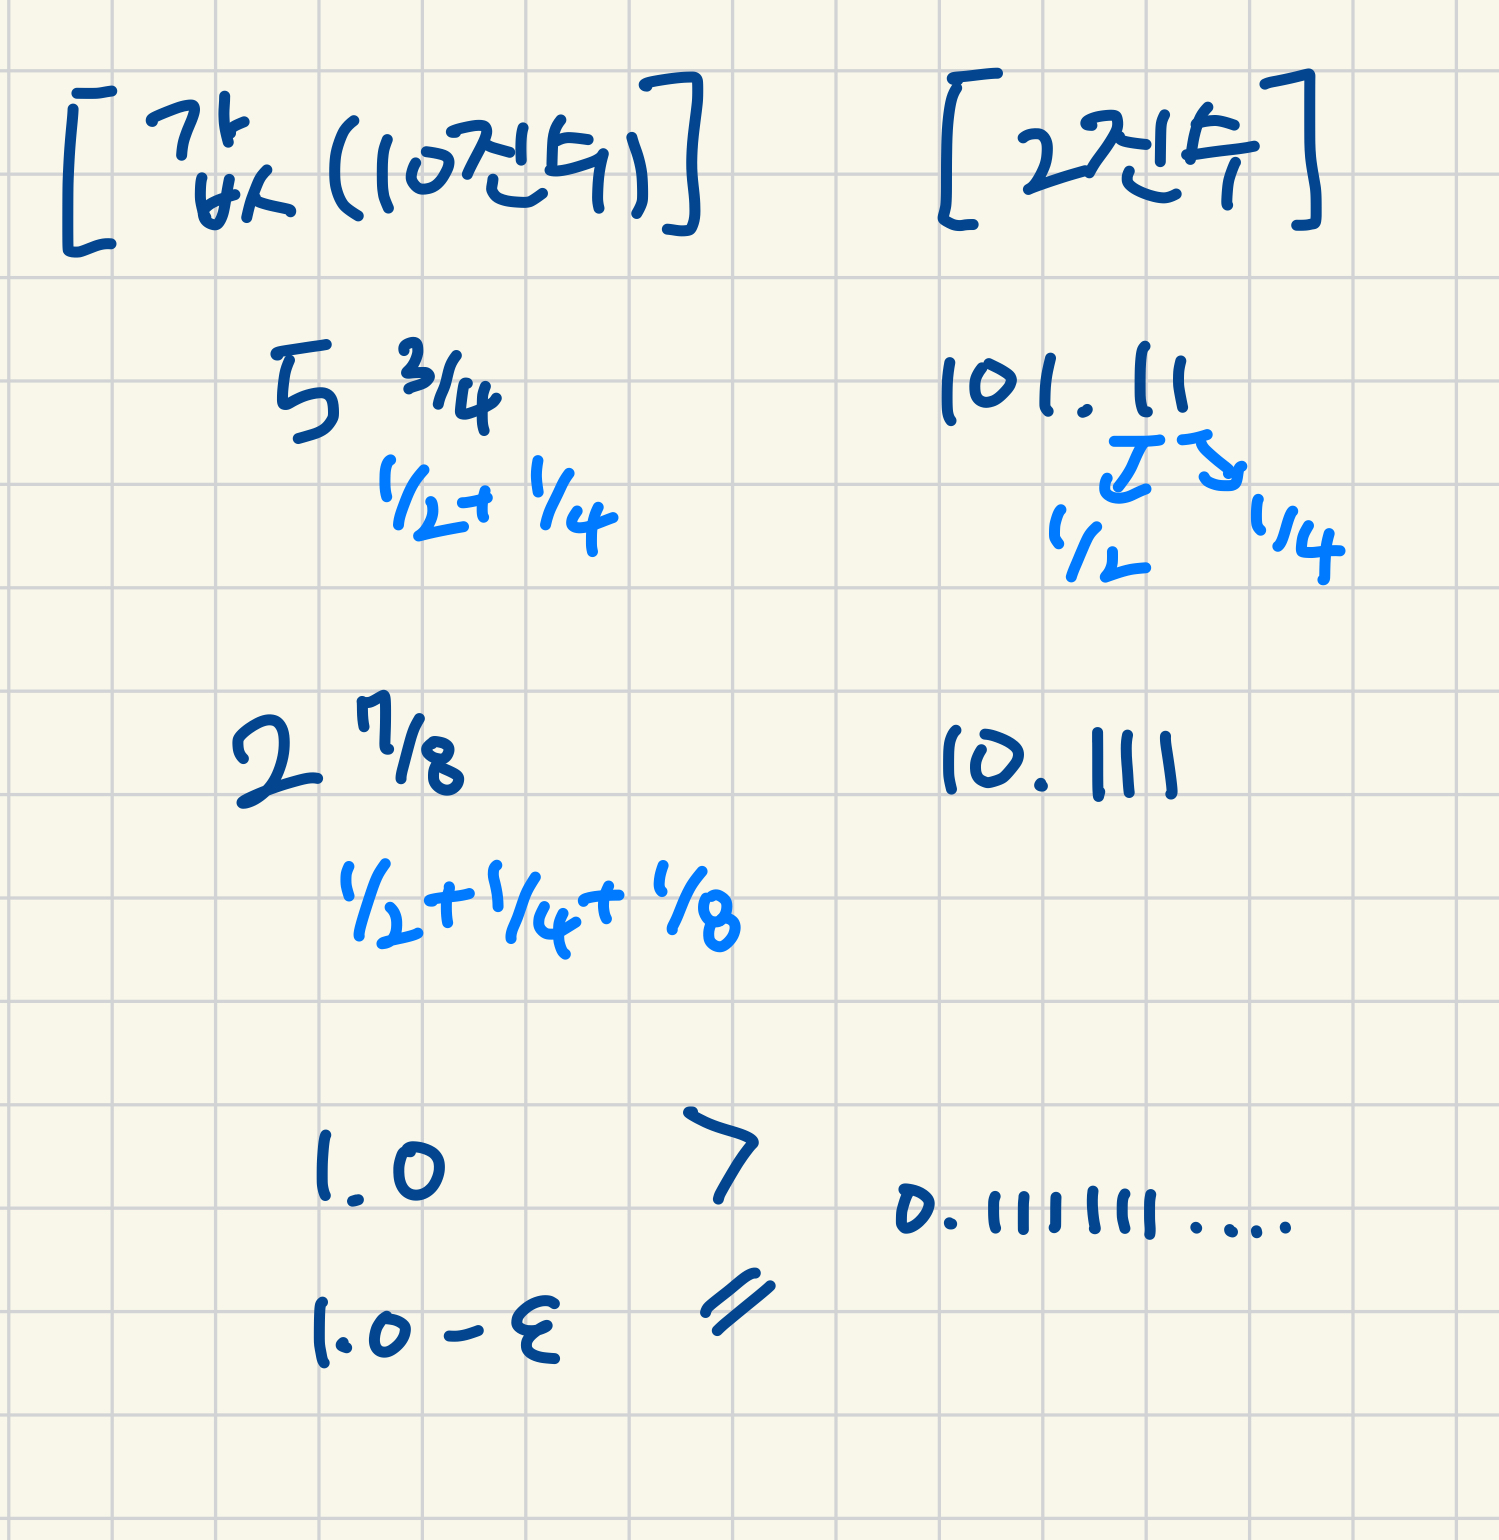 [값 (10진수)] [2진수]
5 3/4 101.11
1/2 + 1/4 1/2 1/4
2 7/8 10.111
1/2 + 1/4 + 1/8
1.0 > 0.111111....
1.0 - ε =